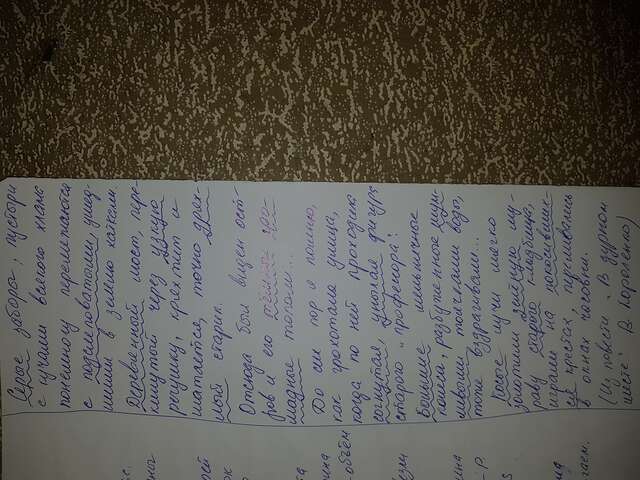 Серые заборы, пустыри
с кучами всякого хлама
понемногу перемежаются
с подслеповатыми, ушед-
шими в землю хатками.
Деревянный мост, пере-
кинутый через узкую
речушку, кряхтит и
шатается, точно дрях-
лый старик.
Отсюда был виден ост-
ров и его тёмные гро-
мадные тополи...
До сих пор я помню,
как грохотала улица,
когда по ней проходила
согнутая, унылая фигура
старого "профессора".
Большие мельничные
колеса, разбуженные шум-
ливыми толчками воды,
тоже вздрагивали...
Косые лучи мягко
золотили зелёную му-
раву старого кладбища,
играли на покосивших-
ся крестах, переливались
в окнах часовни.
(Из повести "В дурном
обществе" В. Короленко)
объём
гаем.